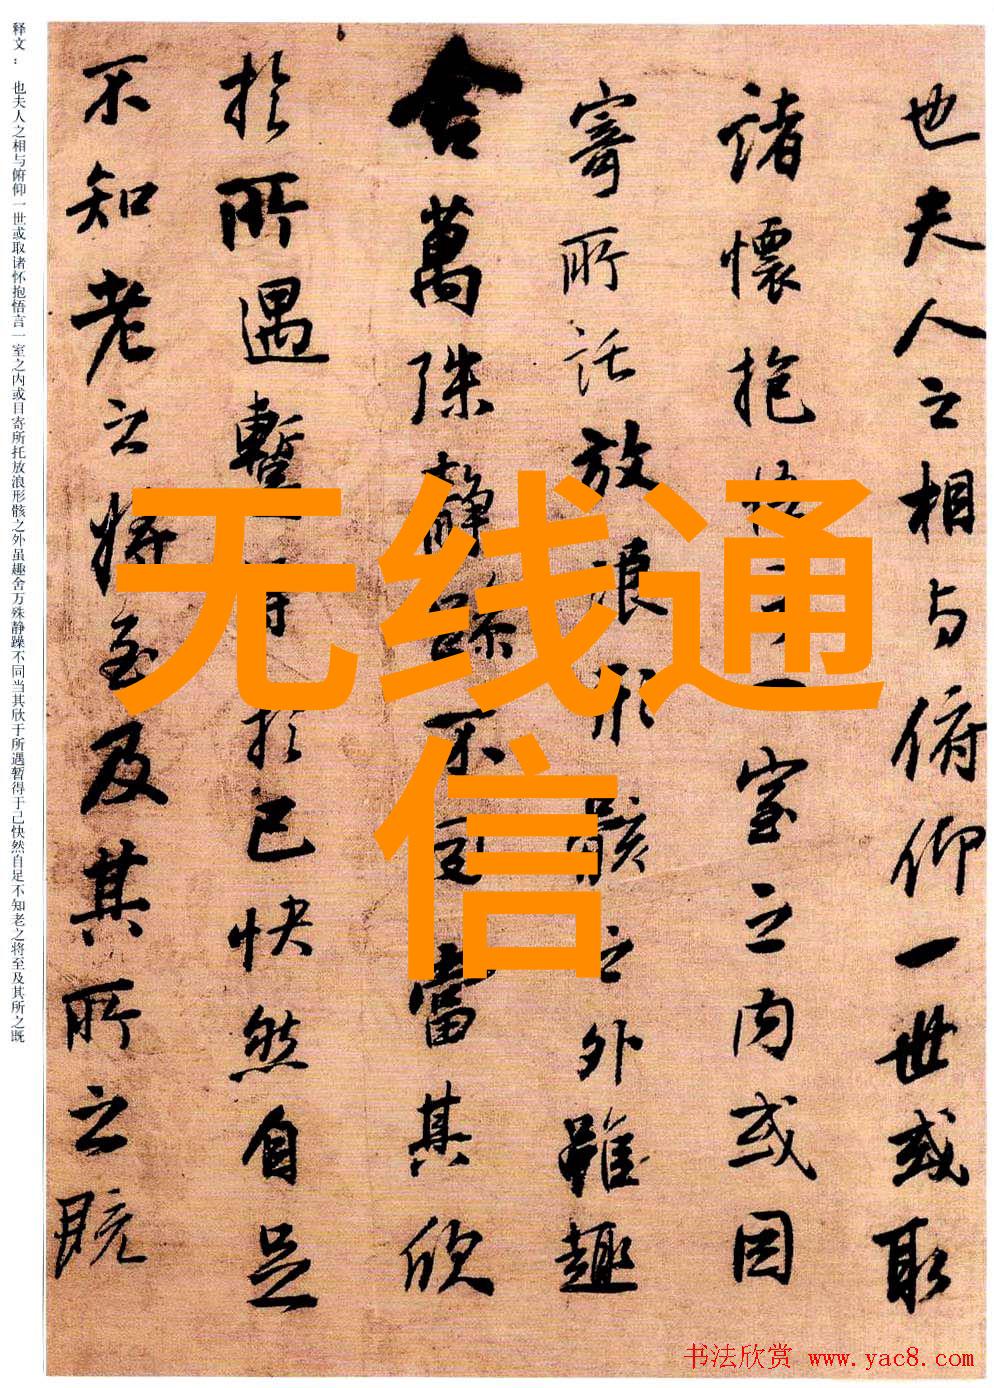 也夫人之相与俯仰一世或取
諸懷抱悟言一室之内或因
寄所託放浪形骸之外雖趣
舍萬殊静躁不同當其欣
於所遇暫得於己快然自足
不知老之將至及其所之既
释文：也夫人之相与俯仰一世或取诸怀抱悟言一室之内或目寄所托放浪形骸之外虽趣舍万殊静躁不同当其欣于所遇暂得于己快然自足不知老之将至及其所之既
无线通
信
书法欣赏 www.yac8.com